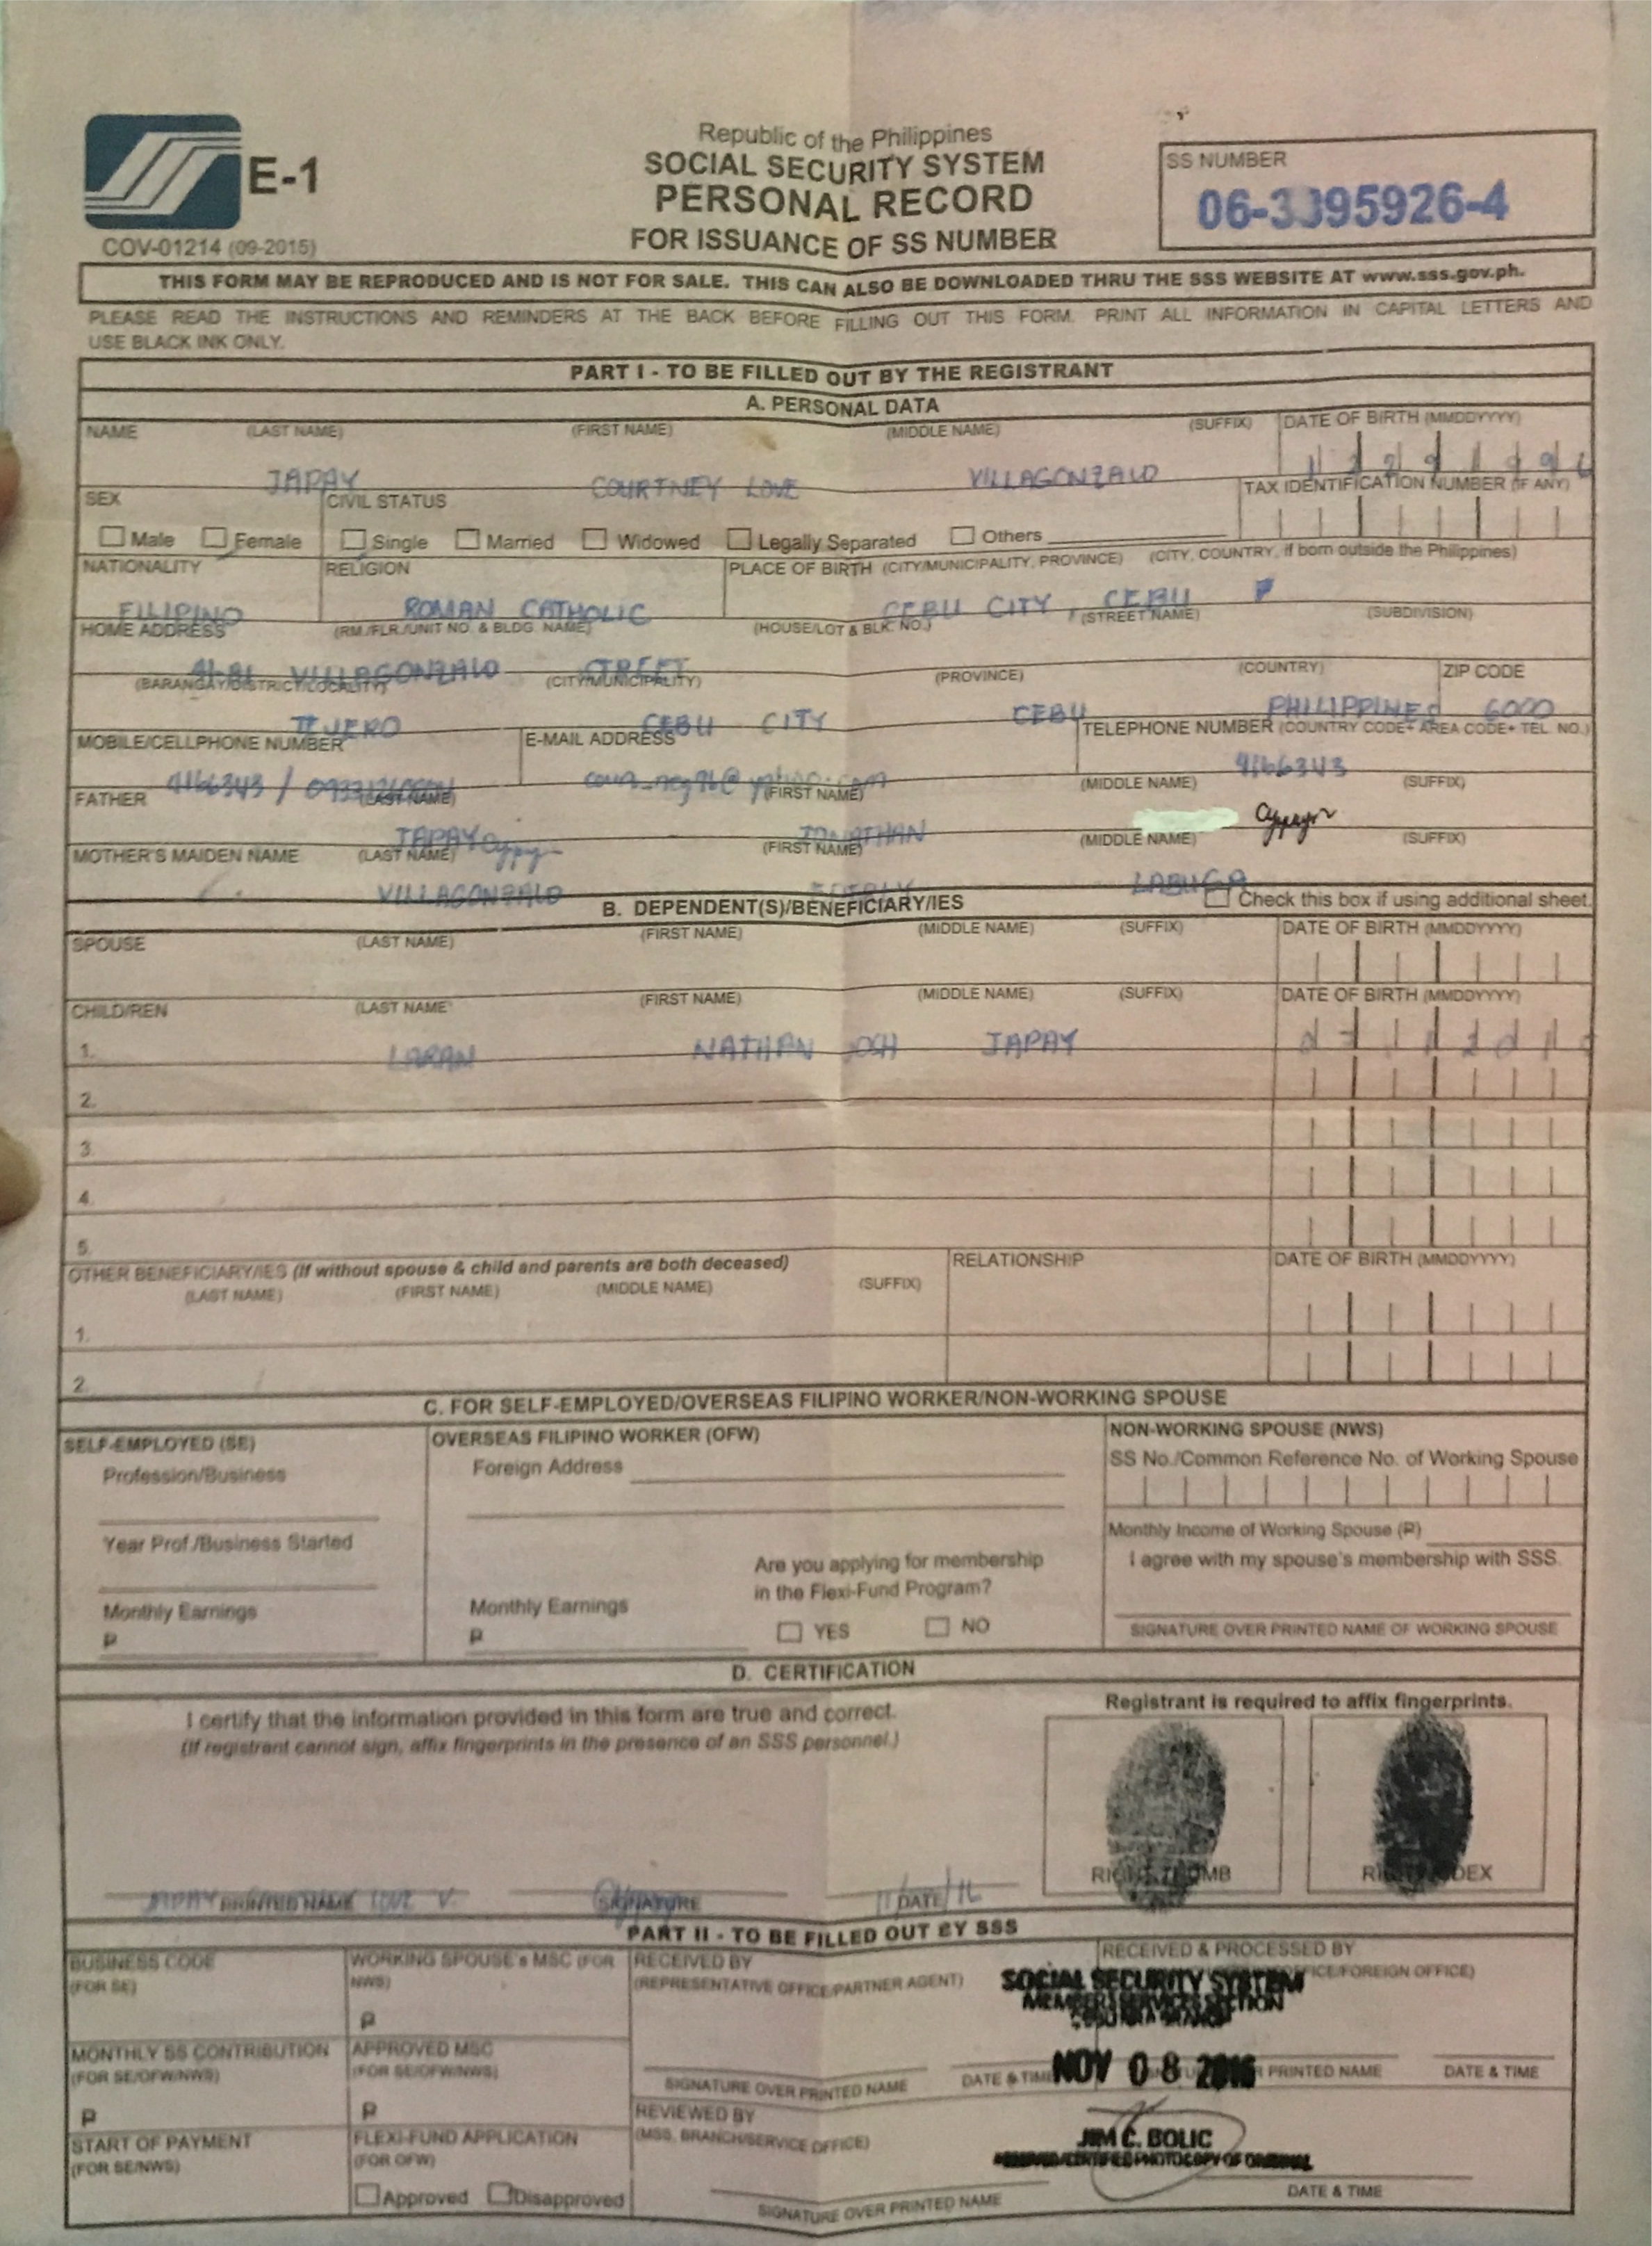 E-1
COV-01214 (09-2015)
Republic of the Philippines
SOCIAL SECURITY SYSTEM
PERSONAL RECORD
FOR ISSUANCE OF SS NUMBER
SS NUMBER
THIS FORM MAY BE REPRODUCED AND IS NOT FOR SALE. THIS CAN ALSO BE DOWNLOADED THRU THE SSS WEBSITE AT www.sss.gov.ph.
PLEASE READ THE INSTRUCTIONS AND REMINDERS AT THE BACK BEFORE FILLING OUT THIS FORM. PRINT ALL INFORMATION IN CAPITAL LETTERS AND
USE BLACK INK ONLY.
PART I - TO BE FILLED OUT BY THE REGISTRANT
A. PERSONAL DATA
NAME (LAST NAME) (FIRST NAME) (MIDDLE NAME) (SUFFIX) DATE OF BIRTH (MMDDYYYY)
JAPAY COURTNEY LOVE VILLAGONZALO
SEX CIVIL STATUS TAX IDENTIFICATION NUMBER (IF ANY)
Male Female Single Married Widowed Legally Separated Others
NATIONALITY RELIGION PLACE OF BIRTH (CITY/MUNICIPALITY, PROVINCE) (CITY, COUNTRY, if born outside the Philippines)
FILIPINO ROMAN CATHOLIC CEBU CITY CEBU
HOME ADDRESS (RM./FLR./UNIT NO. & BLDG. NAME) (HOUSE/LOT & BLK. NO.) (STREET NAME) (SUBDIVISION)
VILLAGONZALO STREET
(BARANGAY/DISTRICT/LOCALITY) (CITY/MUNICIPALITY) (PROVINCE) (COUNTRY) ZIP CODE
TEJERO CEBU CITY CEBU PHILIPPINES 6000
MOBILE/CELLPHONE NUMBER E-MAIL ADDRESS TELEPHONE NUMBER (COUNTRY CODE+ AREA CODE+ TEL. NO.)
4166343 / 4166343
FATHER (LAST NAME) (FIRST NAME) (MIDDLE NAME) (SUFFIX)
JAPAY JONATHAN
MOTHER'S MAIDEN NAME (LAST NAME) (FIRST NAME) (MIDDLE NAME) (SUFFIX)
VILLAGONZALO LABUGA
B. DEPENDENT(S)/BENEFICIARY/IES Check this box if using additional sheet.
SPOUSE (LAST NAME) (FIRST NAME) (MIDDLE NAME) (SUFFIX) DATE OF BIRTH (MMDDYYYY)
CHILD/REN (LAST NAME (FIRST NAME) (MIDDLE NAME) (SUFFIX) DATE OF BIRTH (MMDDYYYY)
1. LARAN NATHAN JAPAY
2.
3.
4.
5.
OTHER BENEFICIARY/IES (If without spouse & child and parents are both deceased) RELATIONSHIP DATE OF BIRTH (MMDDYYYY)
(LAST NAME) (FIRST NAME) (MIDDLE NAME) (SUFFIX)
1.
2.
C. FOR SELF-EMPLOYED/OVERSEAS FILIPINO WORKER/NON-WORKING SPOUSE
SELF-EMPLOYED (SE) OVERSEAS FILIPINO WORKER (OFW) NON-WORKING SPOUSE (NWS)
Profession/Business Foreign Address SS No./Common Reference No. of Working Spouse
Year Prof./Business Started Monthly Income of Working Spouse (₱)
Are you applying for membership I agree with my spouse's membership with SSS.
in the Flexi-Fund Program?
Monthly Earnings Monthly Earnings
₱ ₱ YES NO SIGNATURE OVER PRINTED NAME OF WORKING SPOUSE
D. CERTIFICATION
I certify that the information provided in this form are true and correct. Registrant is required to affix fingerprints.
(If registrant cannot sign, affix fingerprints in the presence of an SSS personnel.)
RIGHT THUMB RIGHT INDEX
JAPAY LOVE V.
PRINTED NAME SIGNATURE DATE
PART II - TO BE FILLED OUT BY SSS
BUSINESS CODE WORKING SPOUSE's MSC (FOR RECEIVED BY RECEIVED & PROCESSED BY
(FOR SE) NWS) (REPRESENTATIVE OFFICE/PARTNER AGENT) OFFICE/FOREIGN OFFICE)
SOCIAL SECURITY SYSTEM
MEMBER SERVICES SECTION
₱
MONTHLY SS CONTRIBUTION APPROVED MSC
(FOR SE/OFW/NWS) (FOR SE/OFW/NWS)
NOV 08 2016
SIGNATURE OVER PRINTED NAME DATE & TIME PRINTED NAME DATE & TIME
₱ ₱ REVIEWED BY
START OF PAYMENT FLEXI-FUND APPLICATION (MSS, BRANCH/SERVICE OFFICE) JIM C. BOLIC
(FOR SE/NWS) (FOR OFW) CERTIFIED PHOTOCOPY OF ORIGINAL
Approved Disapproved SIGNATURE OVER PRINTED NAME DATE & TIME